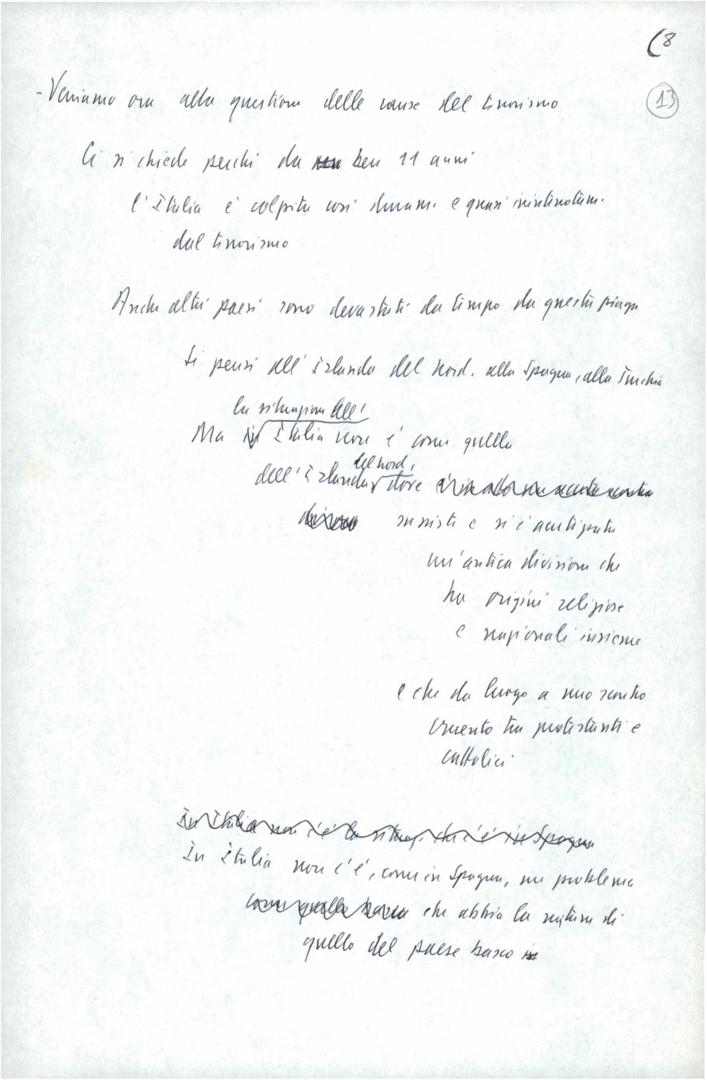 (8
13
- Veniamo ora alla questione delle cause del terrorismo
Ci si chiede perchè da ben 11 anni
l'Italia è colpita così duram. e quasi ininterrottam.
dal terrorismo
Anche altri paesi sono devastati da tempo da questa piaga
Si pensi all'Irlanda del Nord, alla Spagna, alla Turchia
la situazione dell'
Ma in Italia non è come quella
del nord,
dell'Irlanda dove
sussiste e si è
un'antica divisione che
ha origini religiose
e nazionali insieme
e che dà luogo a uno scontro
cruento tra protestanti e
cattolici
In Italia non c'è la situaz. che c'è in Spagna
In Italia non c'è, come in Spagna, un problema
come quello basco che abbia la natura di
quello del paese basco in